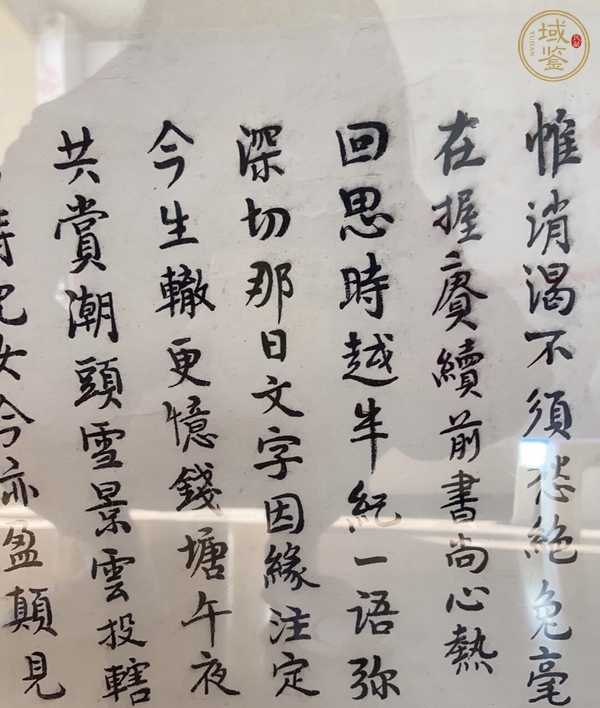 惟消渴不須愁絕兔毫
在握賡續前書尚心熱
回思時越半紀一语弥
深切那日文字因緣注定
今生轍更憶錢塘午夜
共賞潮頭雪景雲投轄
兒女今亦盈顛見
域鉴
YUJIAN